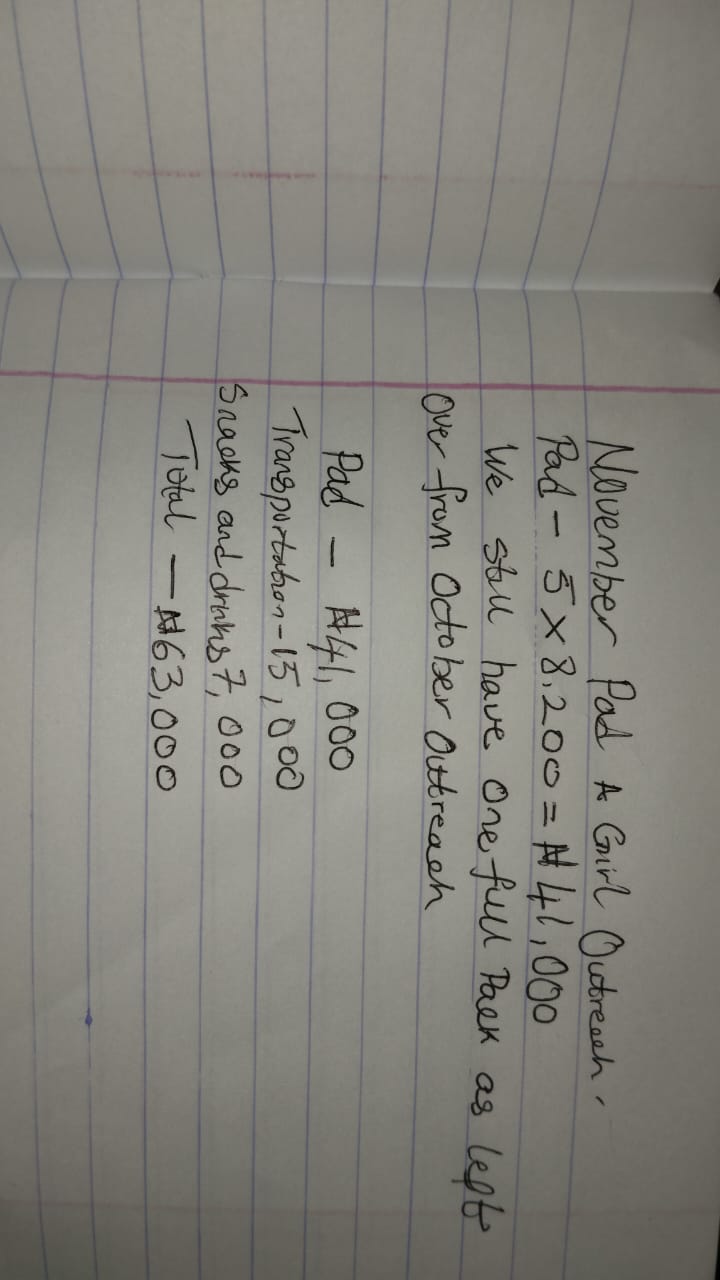 November Pad A Girl Outreach.
Pad - 5 x 8,200 = ₦41,000
We still have one full Pack as left
over from October Outreach
Pad - ₦41,000
Transportation - 15,000
Snacks and drinks 7,000
Total - ₦63,000